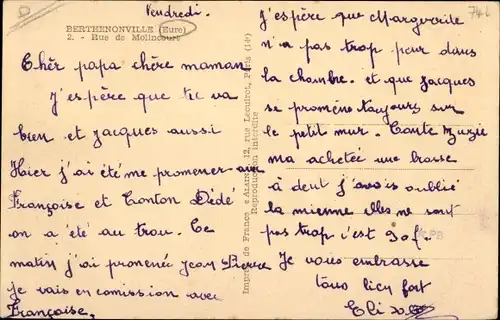 Vendredi.
BERTHENONVILLE (Eure)
2. - Rue de Molincourt
Chèr papa chère maman
J'espère que tu va
bien et Jacques aussi
Hier j'ai été me promener avec
Françoise et Tonton Dédé
on a été au trou. Ce
matin j'ai promené Jean Pierre
je vais en comission avec
Françoise.
Imprimé de France « ALAIN », 12, rue Lecuirot, Paris (14e)
Reproduction interdite
J'espère que Marguerite
n'a pas trop peur dans
la chambre. et que Jacques
se promène toujours sur
le petit mur. Tante Zuzie
ma achetée une brosse
à dent j'avais oublié
la mienne elles ne sont
pas trop c'est 90f.
Je vous embrasse
tous bien fort